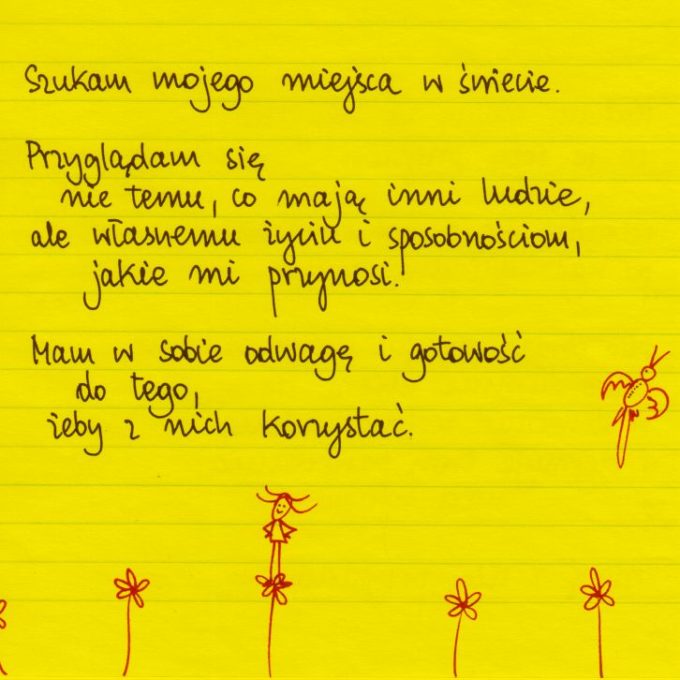 Szukam mojego miejsca w świecie.
Przyglądam się
nie temu, co mają inni ludzie,
ale własnemu życiu i sposobnościom,
jakie mi przynosi.
Mam w sobie odwagę i gotowość
do tego,
żeby z nich korzystać.